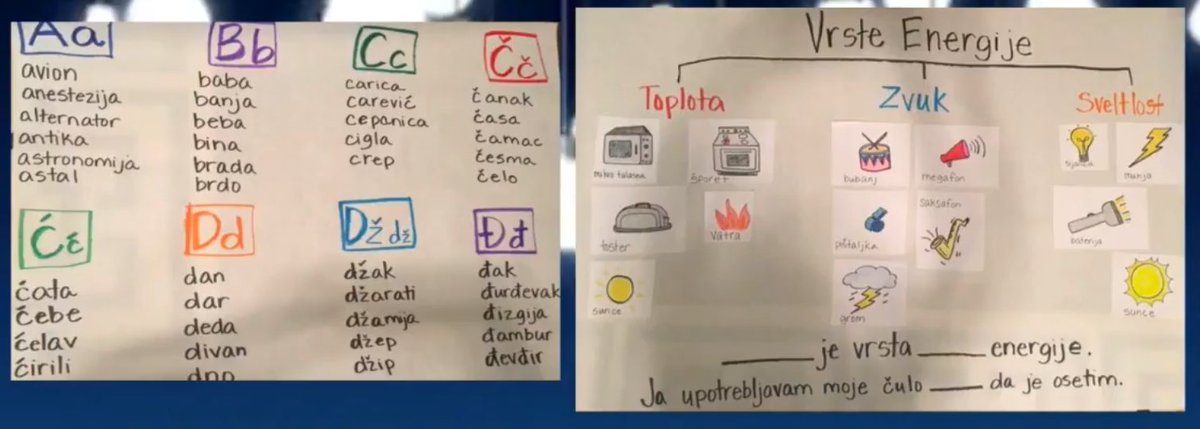 Aa
avion
anestezija
alternator
antika
astronomija
astal
Bb
baba
banja
beba
bina
brada
brdo
Cc
carica
carević
cepanica
cigla
crep
Čč
čanak
časa
čamac
česma
čelo
Ćć
ćata
ćebe
ćelav
ćirili
Dd
dan
dar
deda
divan
Dž dž
džak
džarati
džamija
džep
džip
Đđ
đak
đurđevak
đizgija
đambur
đevđir
Vrste Energije
Toplota
šporet
toster
vatra
sunce
Zvuk
bubanj
megafon
pištaljka
saksafon
grom
Sveltlost
sijalica
munja
baterija
sunce
_____ je vrsta _____ energije.
Ja upotrebljavam moje čulo _____ da je osetim.